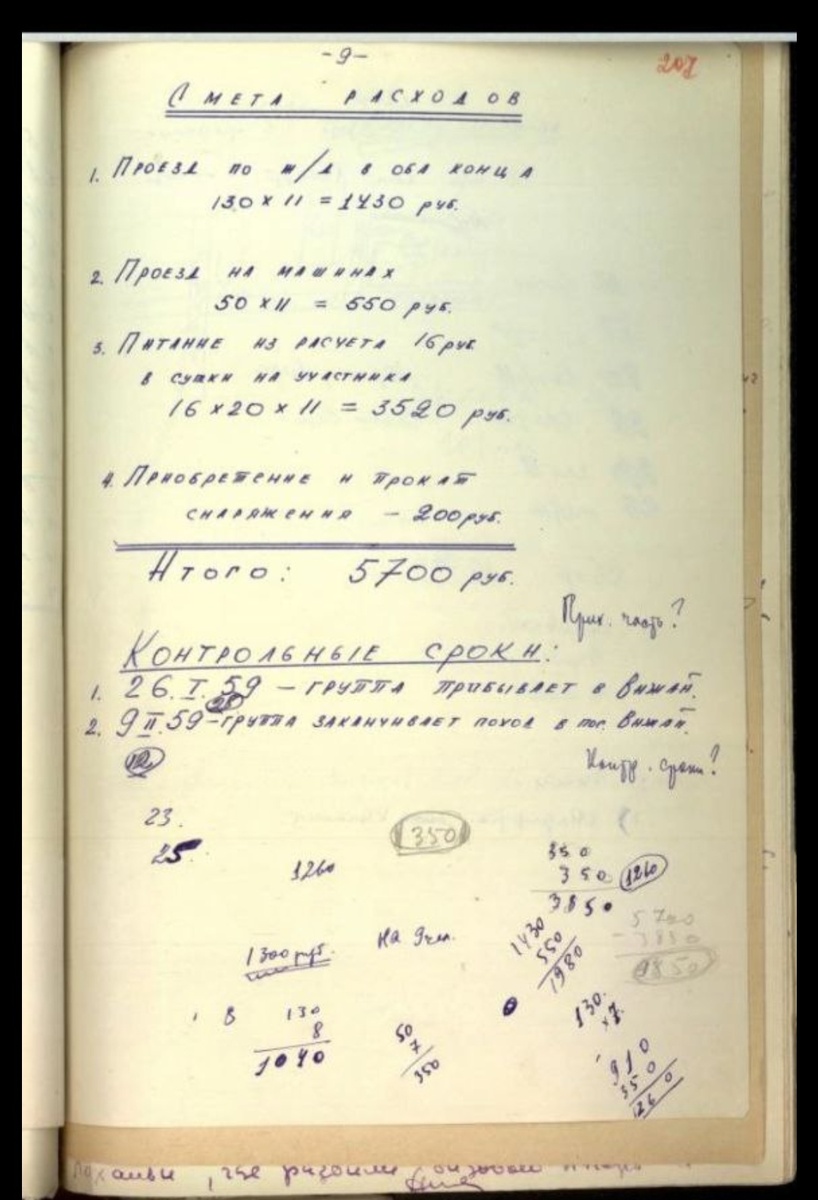 -9-
207
СМЕТА РАСХОДОВ
1. ПРОЕЗД ПО Ж/Д В ОБА КОНЦА
130 x 11 = 1430 РУБ.
2. ПРОЕЗД НА МАШИНАХ
50 x 11 = 550 РУБ.
3. ПИТАНИЕ ИЗ РАСЧЕТА 16 РУБ
В СУТКИ НА УЧАСТНИКА
16 x 20 x 11 = 3520 РУБ.
4. ПРИОБРЕТЕНИЕ И ПРОКАТ
СНАРЯЖЕНИЯ - 200 РУБ.
ИТОГО: 5700 РУБ.
Прих. часть?
КОНТРОЛЬНЫЕ СРОКИ:
1. 26.I.59 - ГРУППА ПРИБЫВАЕТ В ВИЖАЙ.
28
2. 9 II.59 - ГРУППА ЗАКАНЧИВАЕТ ПОХОД В ПОС. ВИЖАЙ.
12
Контр. сроки?
23.
25.
350
1260
350
350 1260
3850
1430
550
1980
5700
- 3850
1850
1300 руб.
На 9 чел.
В 130
8
1040
50
7
350
130.
x 7.
910
350
1260